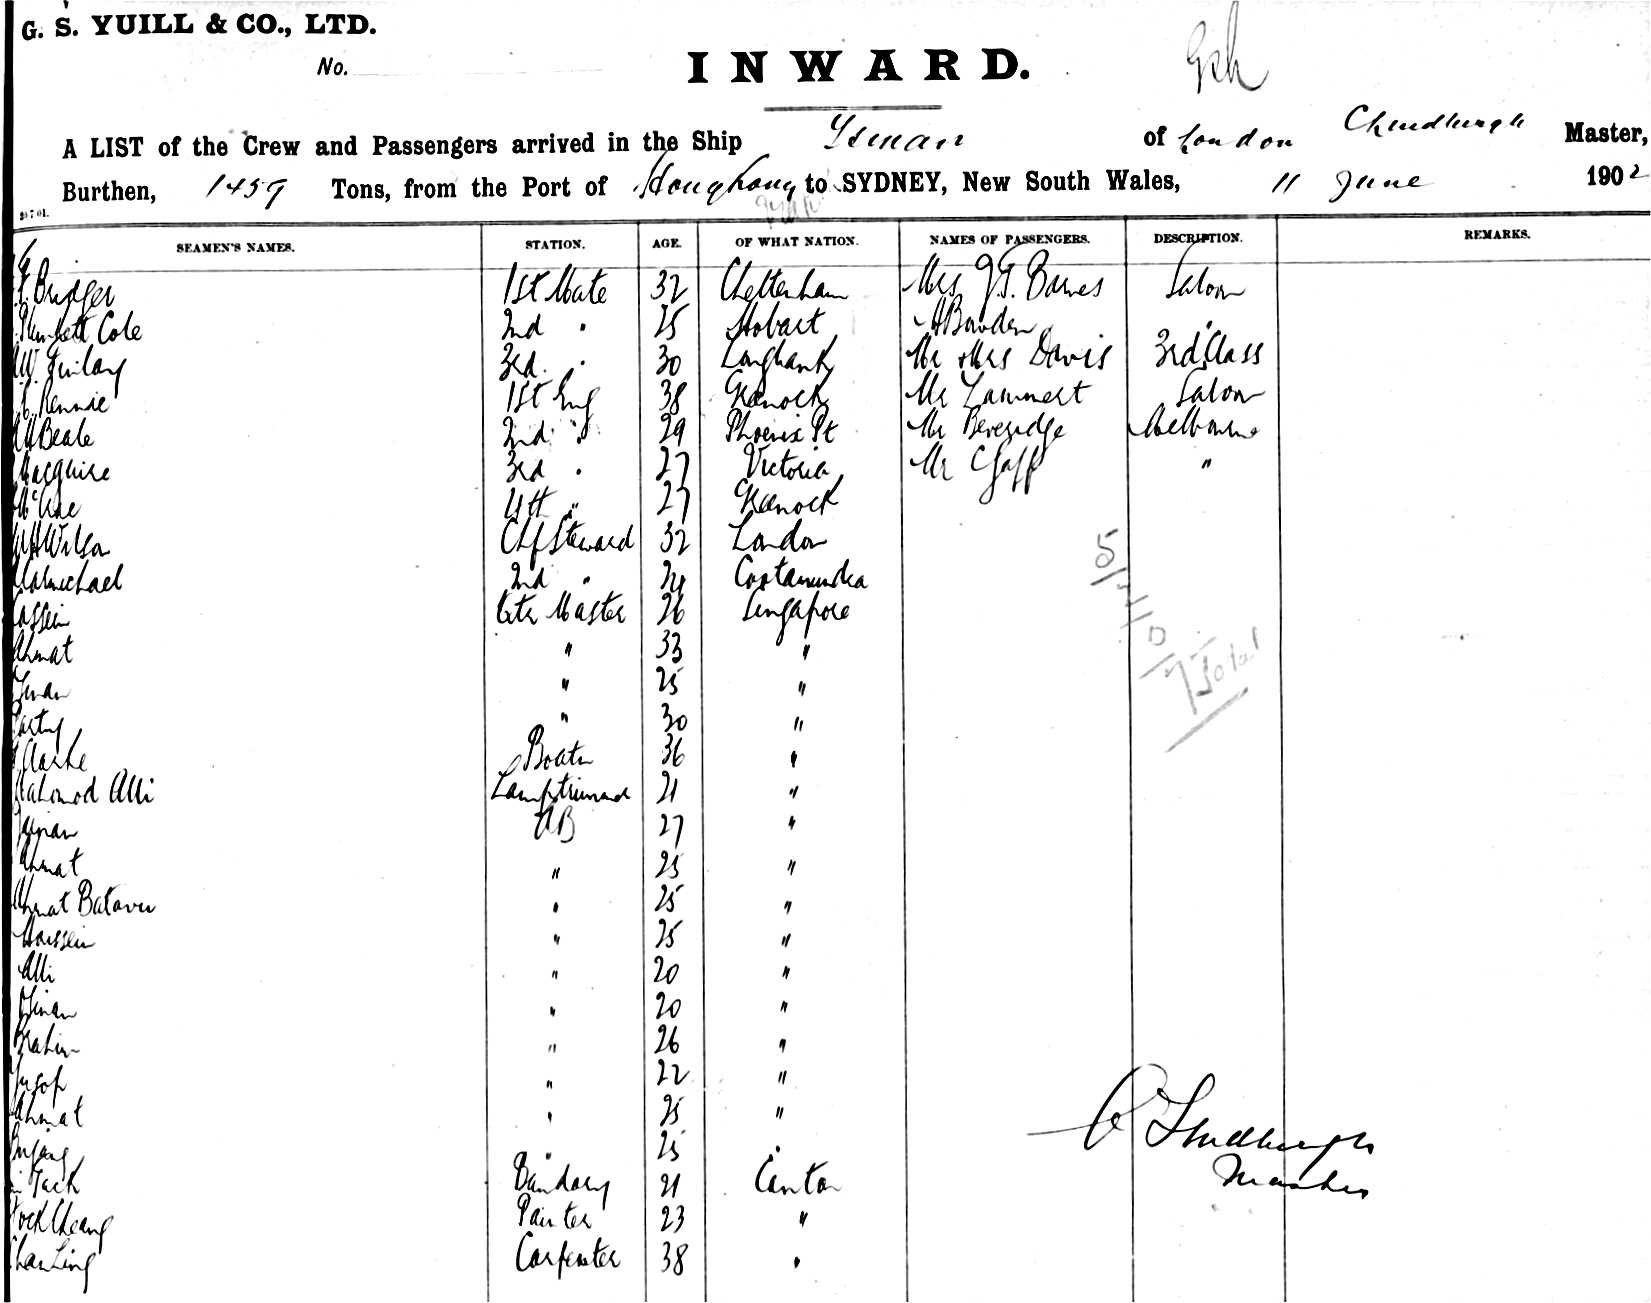 G. S. YUILL & CO., LTD.
No.
INWARD.
A LIST of the Crew and Passengers arrived in the Ship of London Master,
Burthen, 1459 Tons, from the Port of Hongkong to SYDNEY, New South Wales, 11 June 1902
25701.
SEAMEN'S NAMES. STATION. AGE. OF WHAT NATION. NAMES OF PASSENGERS. DESCRIPTION. REMARKS.
Bridger 1st Mate 32 Cheltenham Mrs J.T. Barnes Saloon
Plunkett Cole 2nd " 25 Hobart A Bowden "
3rd " 30 Mr & Mrs Davis 3rd Class
Rennie 1st Eng 38 Greenock Mr Lammert Saloon
Beale 2nd " 29 Phoenix Pt Mr Beveridge Melbourne
Macguire 3rd " 27 Victoria Mr "
McRae 4th " 27 Greenock
Wilson Chf Steward 32 London
Carmichael 2nd " 24 Cootamundra
Cassim Qtr Master 26 Singapore
Ahmat " 33 "
" 25 "
" 30 "
Boatn 36 "
Mahomod Alli Lamptrimmer 21 "
AB 27 "
Ahmat " 25 "
Ahmat Batavia " 25 "
Houssein " 25 "
Alli " 20 "
" 20 "
Brahim " 26 "
Yusof " 22 "
Ahmat " 25 "
Bujang " 25 "
Bandary 21 Canton
Fock Cheang Painter 23 "
Chan Ling Carpenter 38 "
Total
Master